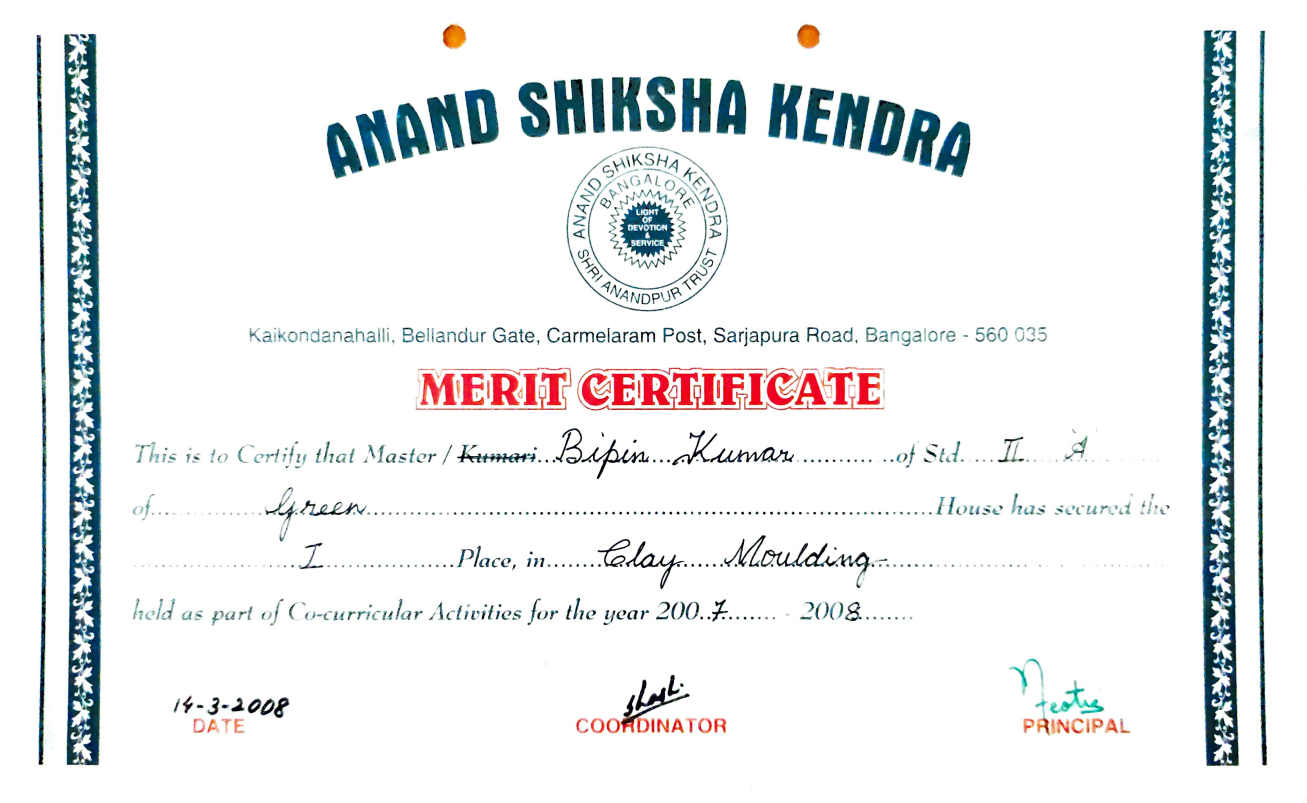 ANAND SHIKSHA KENDRA
ANAND SHIKSHA KENDRA
BANGALORE
LIGHT
OF
DEVOTION
&
SERVICE
SHRI ANANDPUR TRUST
Kaikondanahalli, Bellandur Gate, Carmelaram Post, Sarjapura Road, Bangalore - 560 035
MERIT CERTIFICATE
This is to Certify that Master / Kumari Bipin Kumar of Std. II A
of Green House has secured the
I Place, in Clay Moulding
held as part of Co-curricular Activities for the year 2007 - 2008
14-3-2008
DATE
COORDINATOR
PRINCIPAL